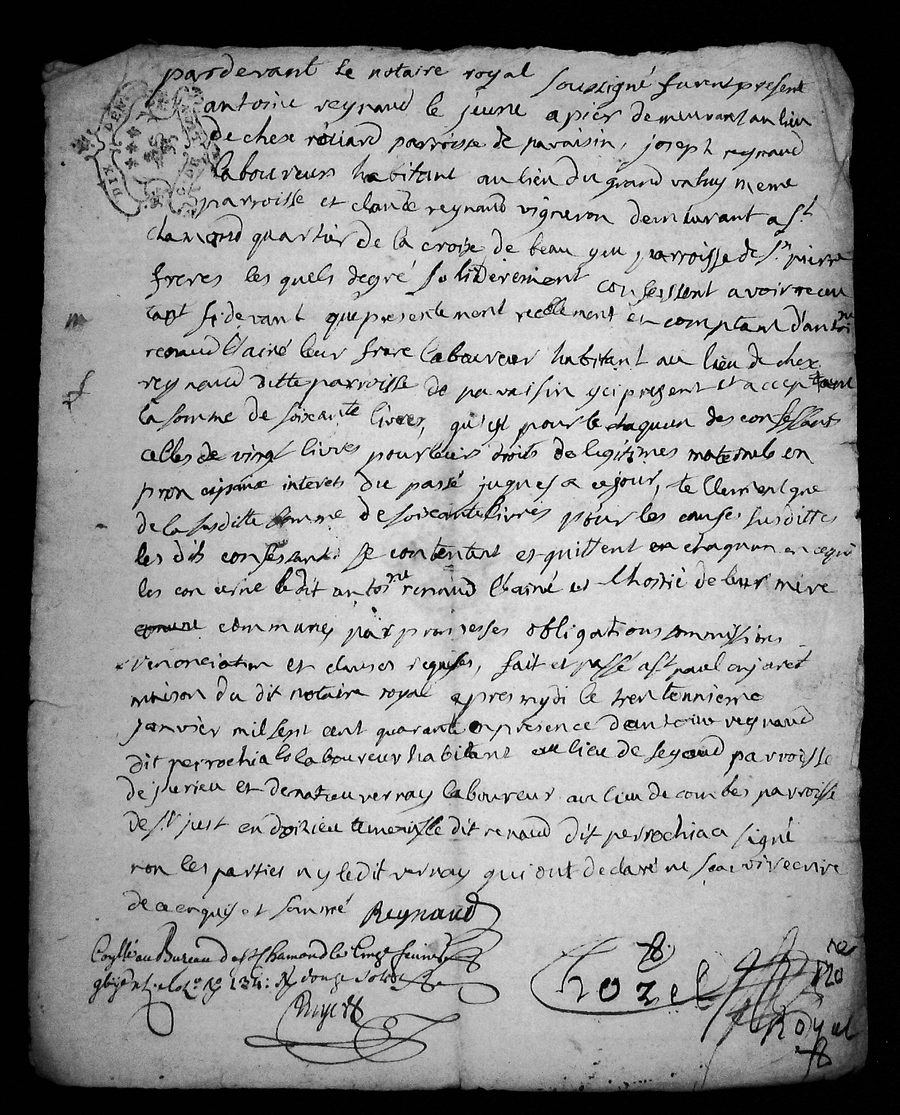 DIX DEN
pardevant le notaire royal soussigné furent present
antoine reynaud le jeune apier demeurant au lieu
de chex parroisse de pavaisin, joseph reynaud
laboureurs habitant au lieu du grand valuy meme
parroisse et claude reynaud vigneron demeurant a St
chamond quartier de la croix de beau parroisse de St pierre
freres les quels degré solidérement confessent avoir receu
tant si devant que presentement reellement et comptant d'antoine
renaud l'ainé leur frere laboureur habitant au lieu de chex
reynaud ditte parroisse de pavaisin yci present et acceptant
la somme de soixante livres, qu'est pour le chaqun des confessants
celles de vingt livres pour leurs droits de legitimes maternels en
interets du passé juques a ce jour, tellement que
de la susditte somme de soixante livres pour les causes susdittes
les dits confessants se contentent et quittent en chaqun en ce qui
les concerne le dit antoine renaud l'ainé et l'hoirié de leur mere
communes par promesses obligations soumissions
renonciation et clauses requises, fait et passé a St paul en jarêt
maison du dit notaire royal apres mydi le trentennieme
janvier mil sept cent quarante en presence d'antoine reynaud
dit perrochia laboureur habitant au lieu de parroisse
de jurieu et de matieu vernay laboureur au lieu de combes parroisse
de St just en doizieu le dit renaud dit perrochia a signé
non les parties ny le dit vernay qui ont declaré ne sçavoir ecrire
de ce enquis et sommé Reynaud
au Bureau de St Chamond le Cinq
douze sols
Chozel
Royal